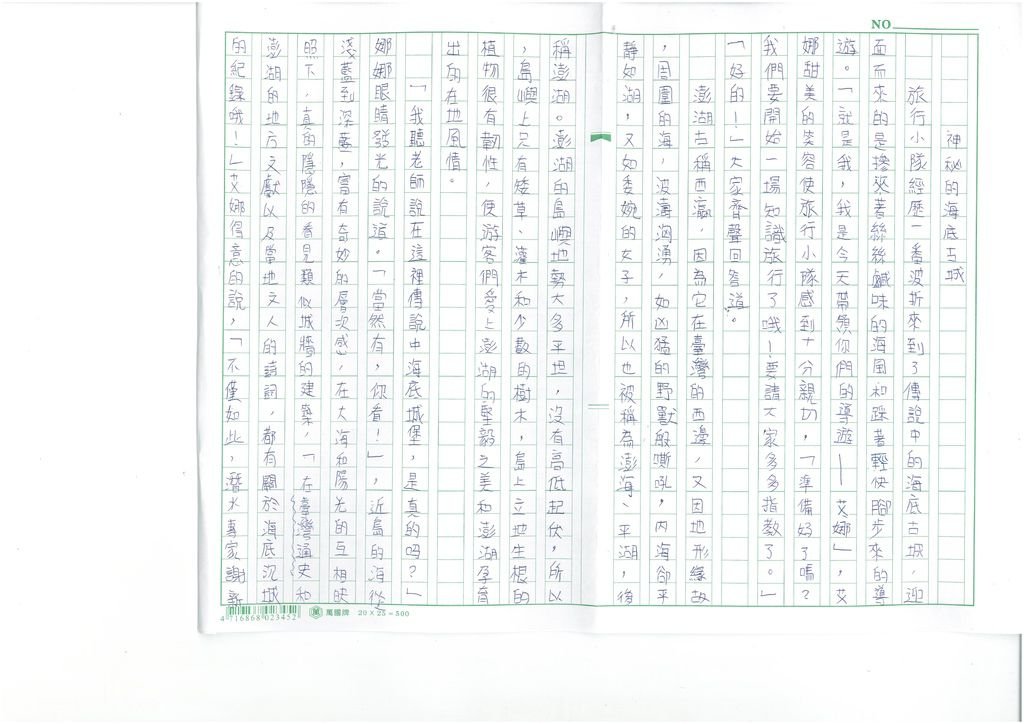 NO
神秘的海底古城
旅行小隊經歷一番波折來到了傳說中的海底古城，迎
面而來的是摻來著絲絲鹹味的海風和踩著輕快腳步來的導
遊。「就是我，我是今天帶領你們的導遊——艾娜」，艾
娜甜美的笑容使旅行小隊感到十分親切，「準備好了嗎？
我們要開始一場知識旅行了哦！要請大家多多指教了。」
「好的！」大家齊聲回答道。
澎湖古稱西瀛，因為它在臺灣的西邊，又因地形緣故
，周圍的海，波濤洶湧，如凶猛的野獸般嘶吼，內海卻平
靜如湖，又如委婉的女子，所以也被稱為澎海、平湖，後
稱澎湖。澎湖的島嶼地勢大多平坦，沒有高低起伏，所以
，島嶼上只有矮草、灌木和少數的樹木，島上立地生根的
植物很有韌性，使遊客們愛上澎湖的堅毅之美和澎湖孕育
出的在地風情。
「我聽老師說在這裡傳說中海底城堡，是真的嗎？」
娜娜眼睛發光的說道。「當然有，你看！」，近島的海從
淺藍到深藍，富有奇妙的層次感，在大海和陽光的互相映
照下，真的隱隱的看見類似城牆的建築，「在臺灣通史和
澎湖的地方文獻以及當地文人的詩詞，都有關於海底沉城
的紀錄哦！」艾娜得意的說，「不僅如此，潛水專家謝新
4 716868 023452
萬國牌 20×25=500